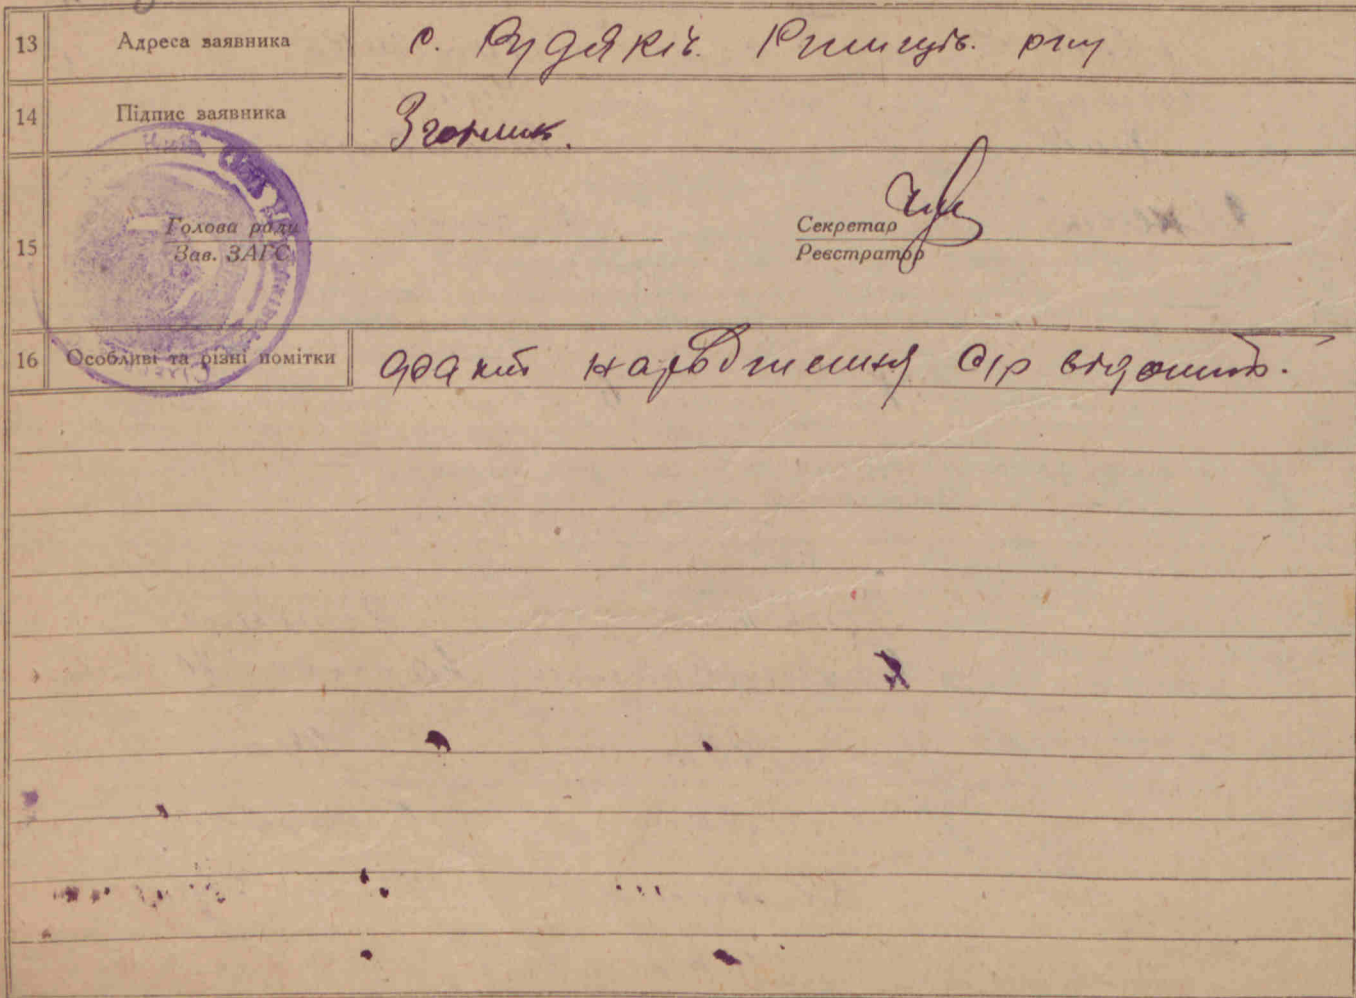 13 Адреса заявника с. Рудяків. Ржищів. р-ну
14 Підпис заявника Згорник.
15 Голова ради
Зав. ЗАГС
Секретар
Реєстратор
16 Особливі та різні помітки факт народження с/р відомий.